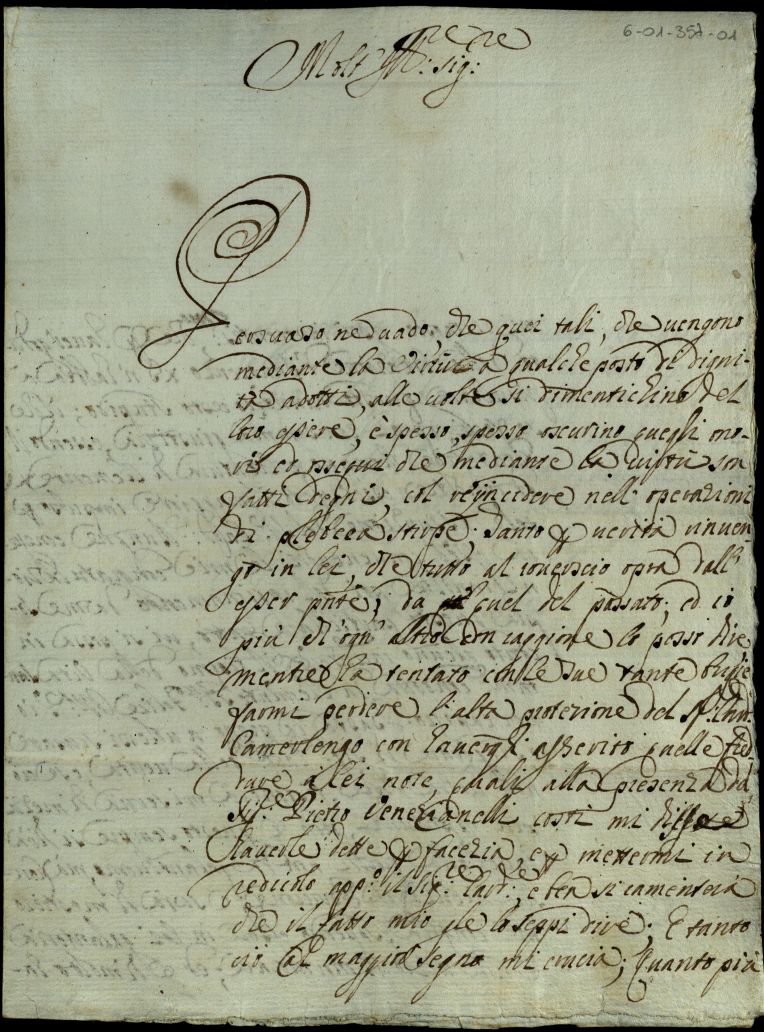 6-01-357-01
Molt Ill:re sig:re
Persuaso ne vado, che quei tali, che vengono
mediante la Virtù a qualche posto di digni-
tà adotti, alle volte si dimentichino del
loro essere, è spesso, spesso oscurino quegli
ed ossequi che mediante la virtù son
fatti degni, col nell' operazioni
di plebbea stirpe; Tanto p verità rinven-
go in lei, che tutto al roverscio opra dall'
esser pnte, da quel del passato; ed io
più di ogn' altro con raggione lo posso dire
mentre ha tentato con le sue tante
farmi perdere l'alta protezione del
Camerlengo con havergli asserito quelle
à lei note, quali alla presenza del
Sig:re Pietro Venezianelli costì mi disse
haverle dette p facezia, e p mettermi in
redicolo app:o il sig:re Card:le, e ben si ramenterà
che il fatto mio gle lo seppi dire; E tanto
ciò al maggior segno mi crucia; Quanto più